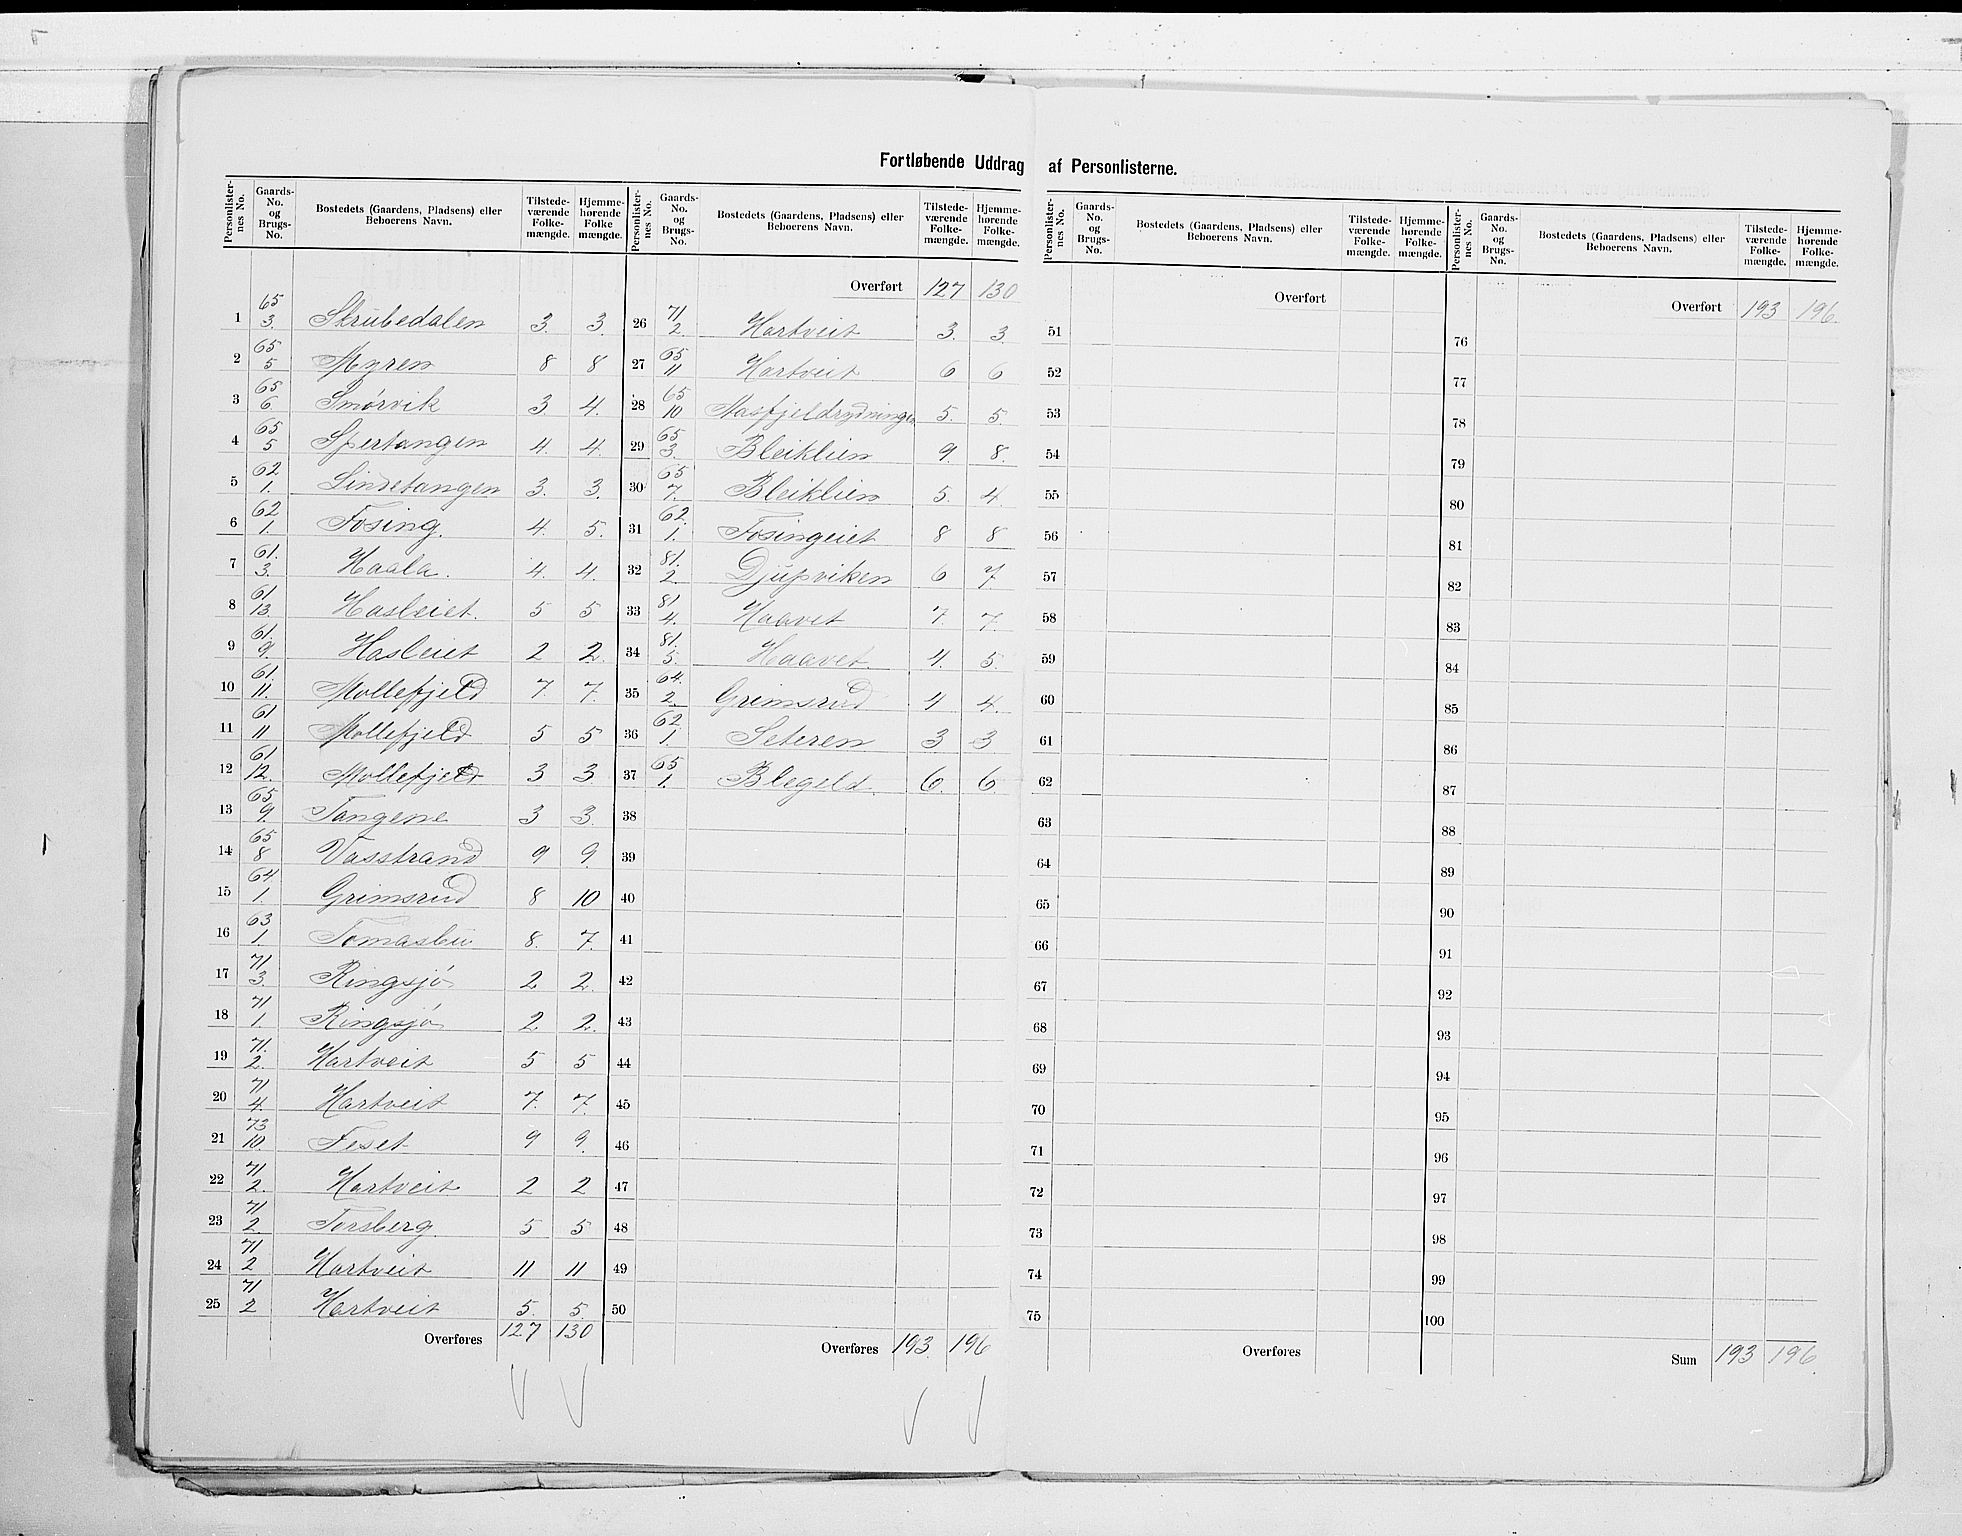 Fortløbende Uddrag af Personlisterne.
Personlisternes No. | Gaards-No. og Brugs-No. | Bostedets (Gaardens, Pladsens) eller Beboerens Navn. | Tilstedeværende Folkemængde. | Hjemmehørende Folkemængde.
1 65/3. Skrubedalen 3. 3.
2 65/5 Myren 8 8
3 65/6. Smörvik 3. 4.
4 65/5 Spertangen 4. 4.
5 62/1. Lindetangen 3. 3.
6 62/1. Fosing. 4. 5.
7 61./3. Haala. 4. 4.
8 61/13. Hasleiet. 5 5
9 61./9. Hasleiet 2 2.
10 61./11. Mollefjeld 7. 7.
11 61/11 Mollefjeld 5 5
12 61/12. Mollefjeld 3 3
13 65./9. Tangene 3 3.
14 65/8 Vasstrand 9 9.
15 64./1. Grimsrud 8 10
16 63/1. Tomasbu 8. 7.
17 71/3. Ringsjö 2 2.
18 71/1. Ringsjö 2. 2.
19 71./2. Hartveit 5 5
20 71/4. Hartveit 7. 7.
21 73/10. Feset 9 9.
22 71/2. Hartveit 2 2
23 71/2. Torsberg. 5 5
24 71/2 Hartveit 11 11
25 71/2 Hartveit 5. 5.
Overføres 127 130
Overført 127 130
26 71/2 Hartveit 3. 3.
27 65/11 Hartveit 6 6
28 65/10 Aasfjeldrydningen 5. 5.
29 65/3. Bleiklien 9. 8.
30 65/7. Bleiklien 5. 4.
31 62./1. Fosingeiet 8 8
32 81./2. Djupviken 6 7.
33 81/4. Haavet 7. 7.
34 81./5. Haavet. 4. 5.
35 64./2. Grimsrud 4 4.
36 62/1. Seteren 3 3
37 65/1. Blegeld. 6. 6.
38
39
40
41
42
43
44
45
46
47
48
49
50
Overføres 193. 196
Personlisternes No. | Gaards-No. og Brugs-No. | Bostedets (Gaardens, Pladsens) eller Beboerens Navn. | Tilstedeværende Folkemængde. | Hjemmehørende Folkemængde.
Overført
51
52
53
54
55
56
57
58
59
60
61
62
63
64
65
66
67
68
69
70
71
72
73
74
75
Overføres
Overført 193 196.
76
77
78
79
80
81
82
83
84
85
86
87
88
89
90
91
92
93
94
95
96
97
98
99
100
Sum 193 196.